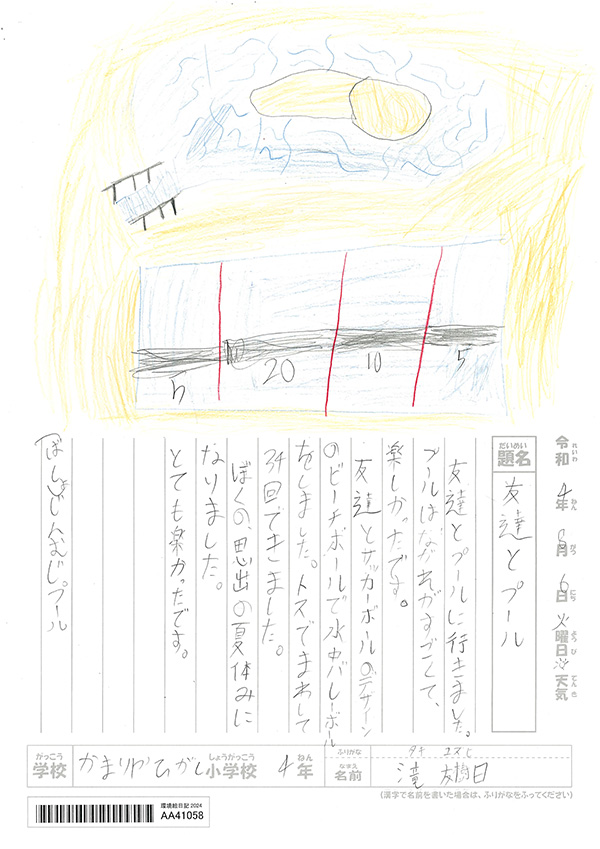 令和4年8月6日火曜日 天気
れいわ ねん がつ にち ようび てんき
だいめい
題名 友達とプール
友達とプールに行きました。
プールはながれがすごくて、
楽しかったです。
友達とサッカーボールのデザイン
のビーチボールで水中バレーボール
をしました。トスでまわして
34回できました。
ぼくの、思出の夏休みに
なりました。
とても楽かったです。
プール
5
20
10
5
がっこう しょうがっこう ねん ふりがな タキ ユズヒ
学校 かまりやひがし小学校 4年 なまえ 名前 滝 友樹日
(漢字で名前を書いた場合は、ふりがなをふってください)
環境絵日記 2024
AA41058